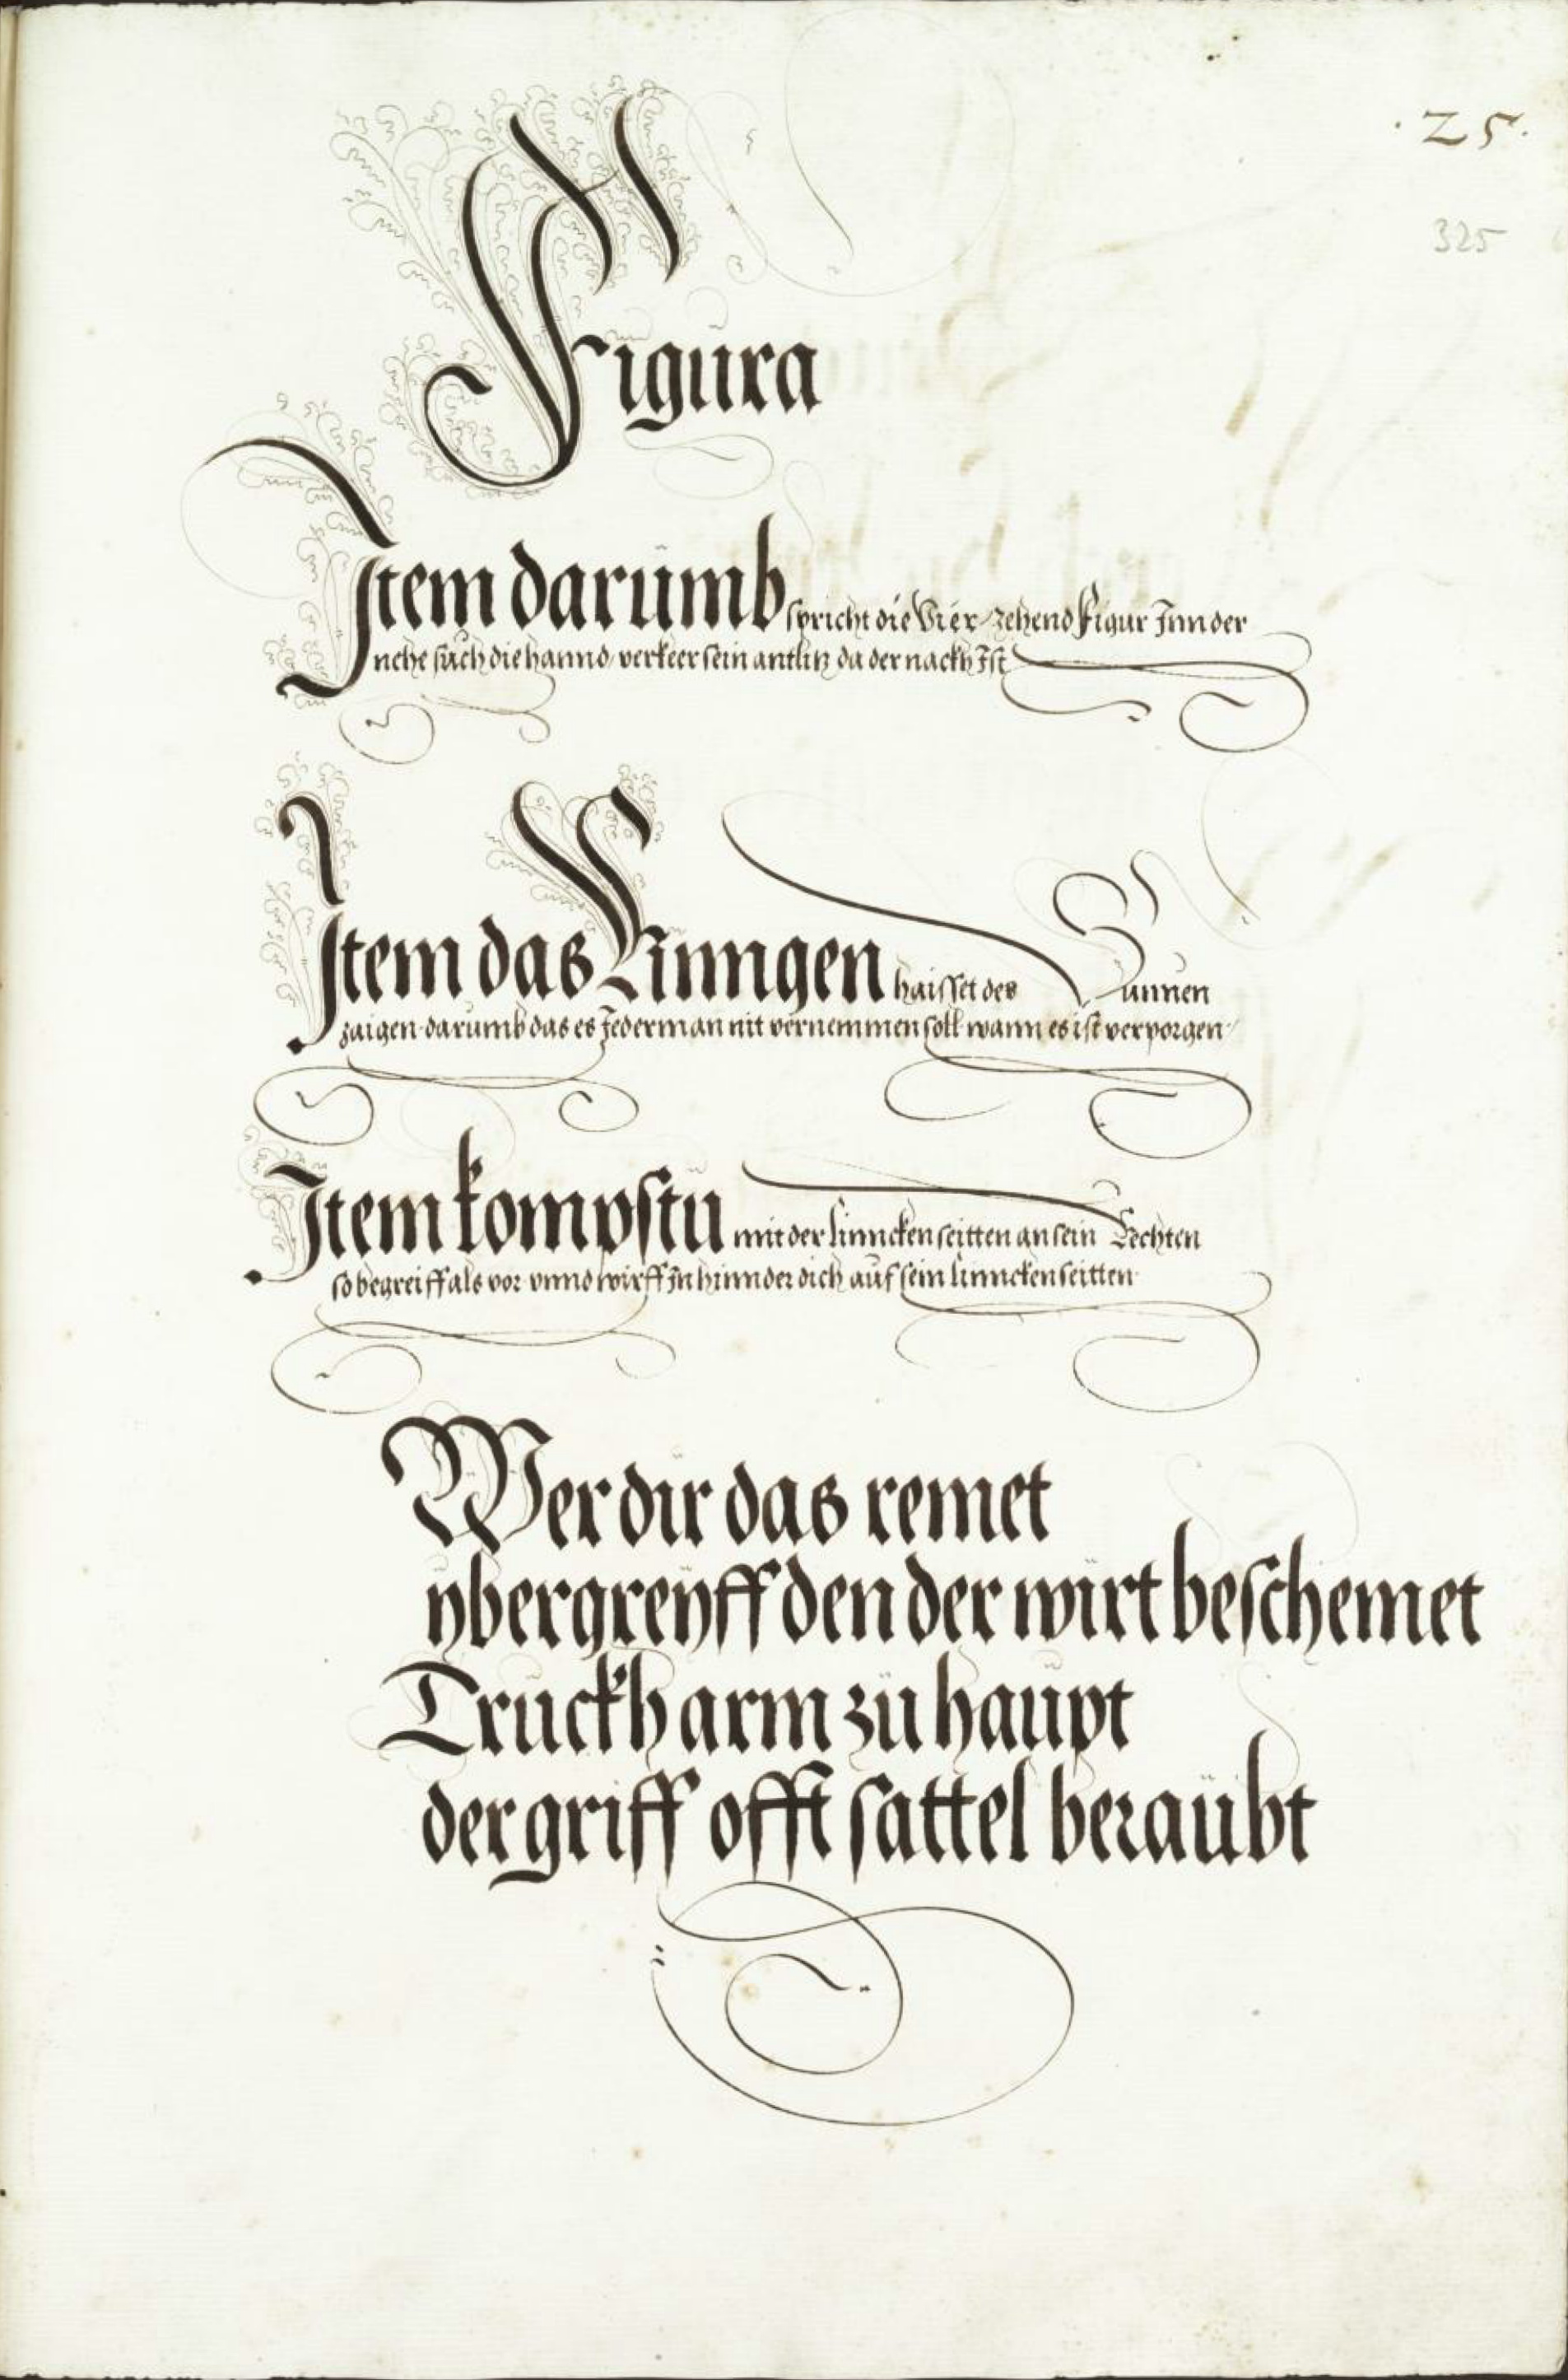 . 25 .
325
Figura
Item darumb spricht die Vier zehend Figur Inn der
nehe sůch die hannd verkeer sein antlitz da der nackh Ist
Item das Ringen haisset des Sunnen
zaigen darumb das es Jederman nit vernemmen soll wann es ist verporgen
Item kompstu mit der linncken seitten an sein Rechten
so begreiff als vor vnnd wirff In hinnder dich auf sein linncken seitten
Wer dir das remet
ybergreyff den der wirt beschemet
Truckh arm zů haupt
der griff offt sattel beraubt